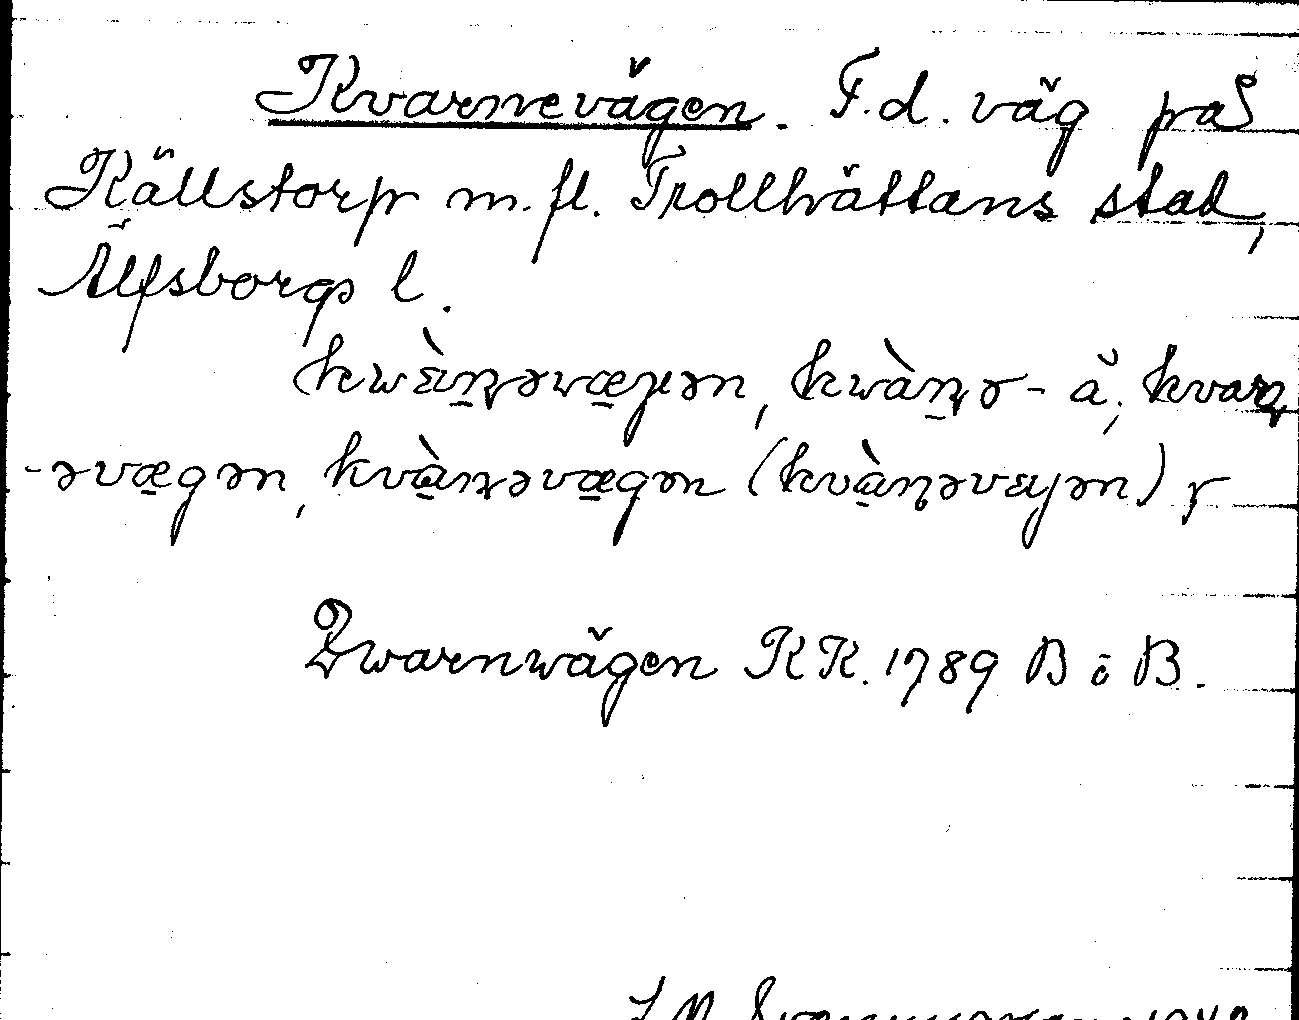 Kvarnevägen. F.d. väg på
Källstorp m.fl. Trollhättans stad,
Älfsborgs l.
kwὲɳəvægən, kwàɳə- ä, kvaɳ
-əvægən, kvàɳəvægən (kvàɳəvεgən) r
Qwarnwägen KK. 1789 B ö B.